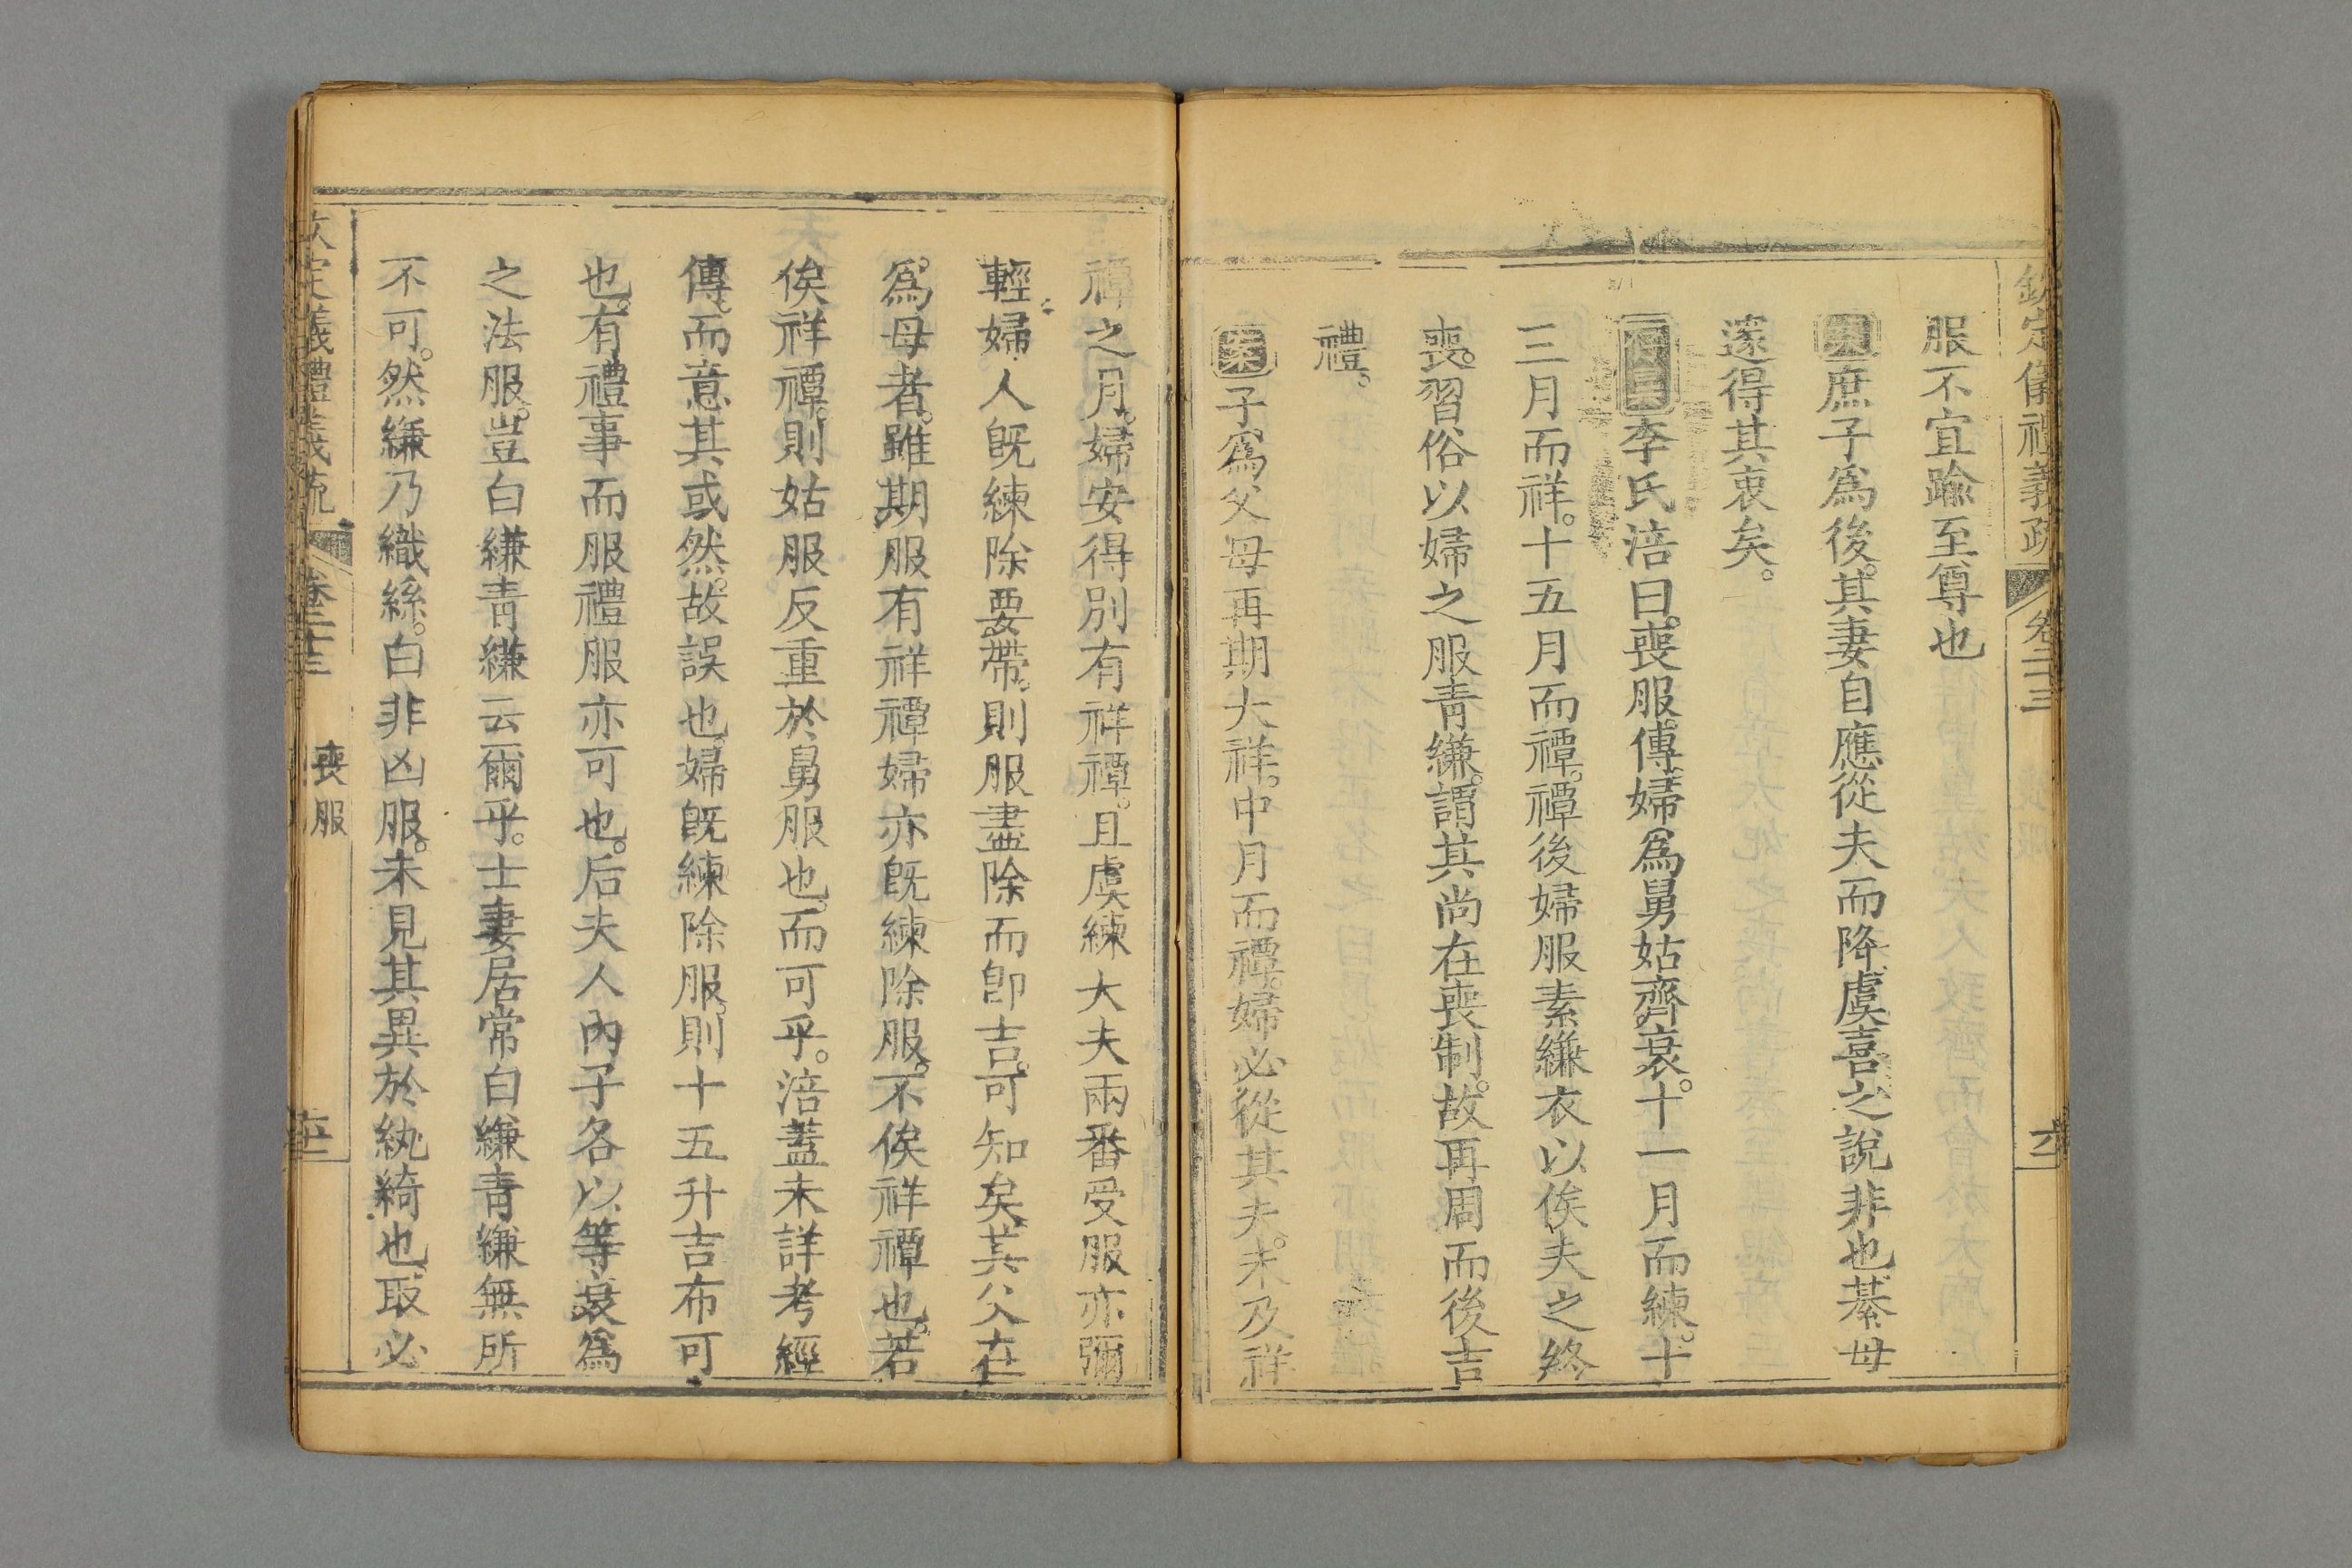 欽定儀禮義疏 卷二十三
服不宜踰至尊也
案庶子爲後。其妻自應從夫而降。虞喜之說非也。綦毋
邃得其衷矣。
存異李氏涪曰。喪服傳。婦爲舅姑齊衰。十一月而練。十
三月而祥。十五月而禫。禫後婦服素縑衣以俟夫之終
喪。習俗以婦之服青縑。謂其尚在喪制。故再周而後吉
禮。
案子爲父母再期大祥。中月而禫。婦必從其夫。未及祥
禫之月。婦安得別有祥禫。且虞練大夫兩番受服亦彌
輕。婦人既練除要帶。則服盡除而卽吉。可知矣。其父在
爲母者。雖期服有祥禫。婦亦既練除服。不俟祥禫也。若
俟祥禫。則姑服反重於舅服也。而可乎。涪蓋未詳考經
傳。而意其或然。故誤也。婦既練除服。則十五升吉布可
也。有禮事而服禮服亦可也。后夫人內子各以等衰爲
之法服。豈白縑青縑云爾乎。士妻居常白縑青縑無所
不可。然縑乃織絲。白非凶服。未見其異於紈綺也。取必
欽定儀禮義疏 卷二十三 喪服